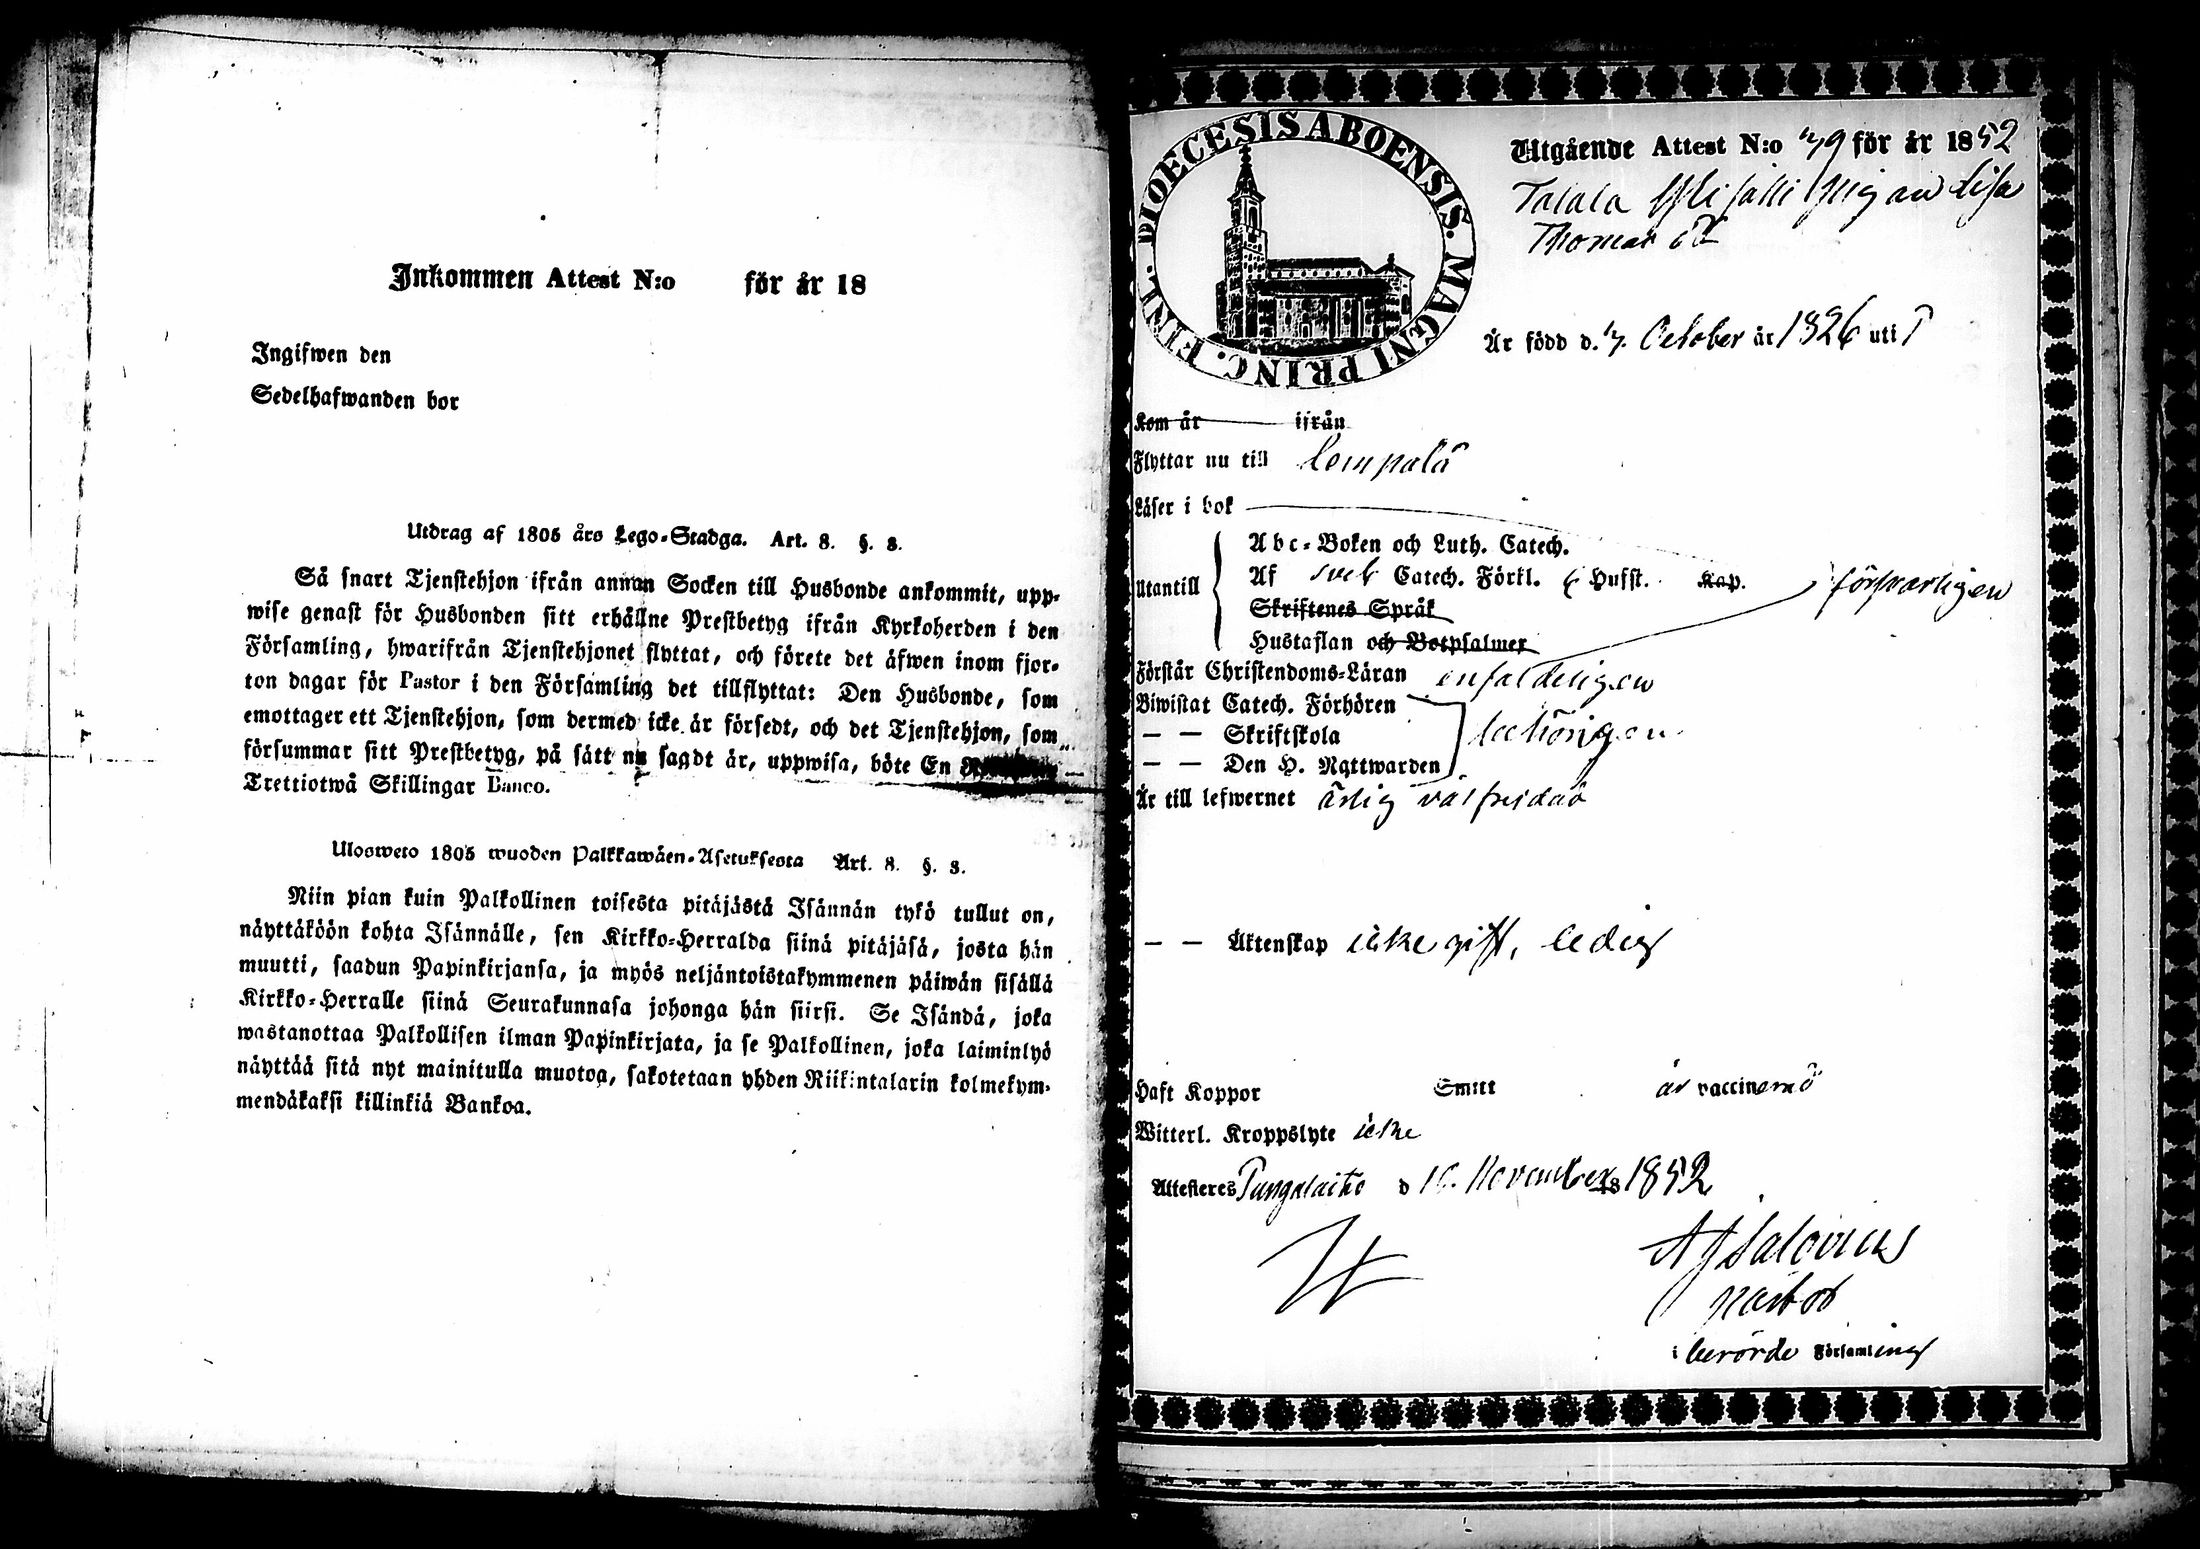 Inkommen Attest N:o för år 18
Ingifwen den
Sedelhafwanden bor
Utdrag af 1805 års Lego-Stadga. Art. 8. §. 3.
Så snart Tjenstehjon ifrån annan Socken till Husbonde ankommit, upp-
wise genast för Husbonden sitt erhållne Prestbetyg ifrån Kyrkoherden i den
Församling, hwarifrån Tjenstehjonet flyttat, och förete det äfwen inom fjor-
ton dagar för Pastor i den Församling det tillflyttat: Den Husbonde, som
emottager ett Tjenstehjon, som dermed icke är försedt, och det Tjenstehjon, som
försummar sitt Prestbetyg, på sätt nu sagdt är, uppwisa, böte En
Trettiotwå Skillingar Banco.
Ulosweto 1805 wuoden Palkkawäen-Asetuksesta Art. 8. §. 3.
Niin pian kuin Palkollinen toisesta pitäjästä Isännän tykö tullut on,
näyttäköön kohta Isännälle, sen Kirkko-Herralda siinä pitäjäsä, josta hän
muutti, saadun Papinkirjansa, ja myös neljäntoistakymmenen päiwän sisällä
Kirkko-Herralle siinä Seurakunnasa johonga hän siirsi. Se Isändä, joka
wastanottaa Palkollisen ilman Papinkirjata, ja se Palkollinen, joka laiminlyö
näyttää sitä nyt mainitulla muotoa, sakotetaan yhden Riikintalarin kolmekym-
mendäkaksi killinkiä Bankoa.
DIOECESIS ABOENSIS. MAGNI PRINC. FINL.
Utgående Attest N:o 79 för år 1852
Talala pigan Lisa
Thomas dr
Är född d. 7. October år 1826 uti T
Kom år ifrån
Flyttar nu till Lempälä
Läser i bok
Utantill
Abc-Boken och Luth. Catech.
Af Sveb Catech. Förkl. 6 Hufst. Kap. försvarligen
Skriftenes Språk
Hustaflan och Botpsalmer
Förstår Christendoms-Läran enfaldeligen
Biwistat Catech. Förhören
— — Skriftskola behörigen
— — Den H. Nattwarden
Är till lefwernet ärlig välfrejdad
— — Äktenskap icke gift, ledig
Haft Koppor Smitt är vaccinerad
Witterl. Kroppslyte icke
Attesteres Pungalaitio d 16. November 18 1852
A J Salovius
Pastor
i berörde Församling